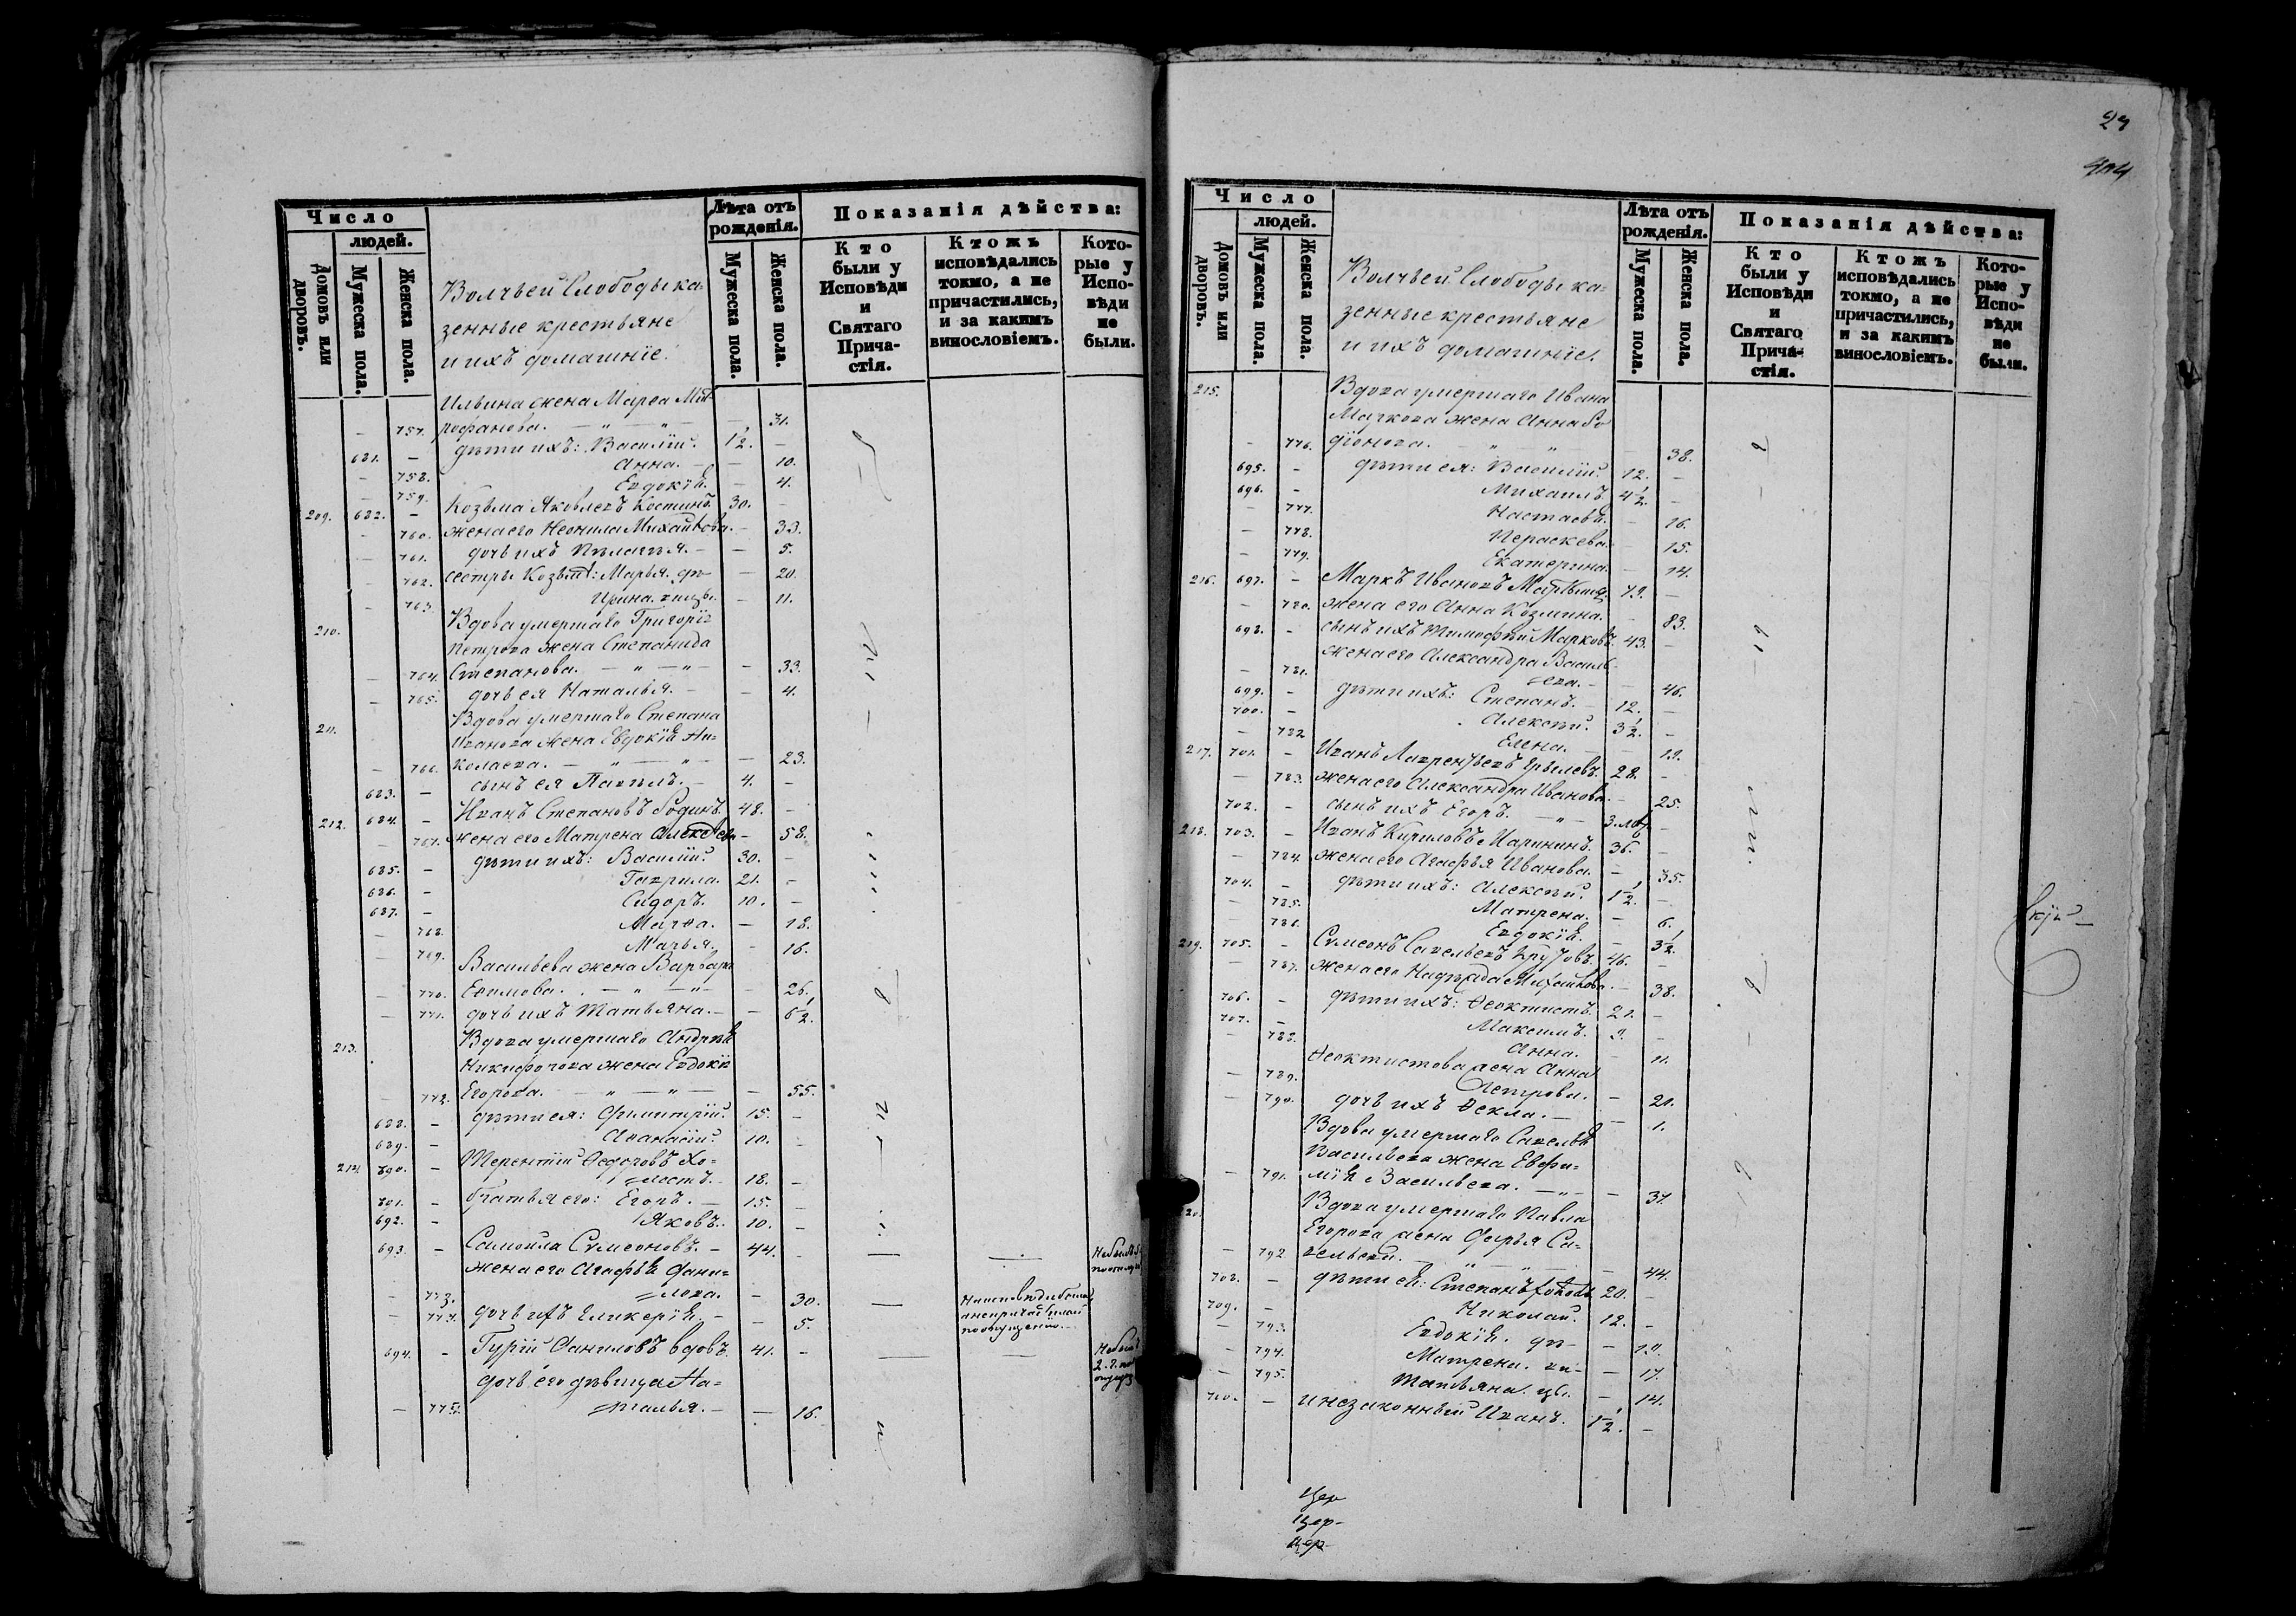 Число
людей.
Домовъ или дворовъ.
Мужеска пола.
Женска пола.
Волчьей Слободы ка=
зенные крестьяне
и ихъ домашніе.
Лѣта отъ
рожденія.
Мужеска пола.
Женска пола.
Показанія дѣйства:
Кто
были у
Исповѣди
и
Святаго
Прича-
стія.
Ктожъ
исповѣдались
токмо, а не
причастились,
и за какимъ
винословіемъ.
Кото-
рые у
Испо-
вѣди
не
были.
Ильина жена Марѳа Мит
— 757. рофанова. — „ — „ — 31.
681. — дѣти ихъ: Василій. 1½. —
— 758. Анна. — — 10.
— 759. Евдокія. — 4.
209. 682. — Козьма Яковлевъ Костинъ. 30. —
— 760. жена его Неонила Михайлова. — 33.
— 761. дочь ихъ Пелагея. — — 5.
— 762. сестры Козьмы: Марья. дѣ — — 20.
— 763. Ирина. вицы. — 11.
210. Вдова умершаго Григорія
Петрова жена Степанида
— 764. Степанова. — „ — „ — — 33.
— 765. дочь ея Наталья. — — 4.
211. Вдова умершаго Степана
Иванова жена Евдокія Ни=
— 766. колаева. — „ — „ — — 23.
683. — сынъ ея Павелъ. — 4. —
212. 684. — Иванъ Степановъ Родинъ. 48. —
— 767. жена его Матрена Алексѣева — 58.
685. — дѣти ихъ: Василій. 30. —
686. — Гаврила. 21. —
687. — Сидоръ. 10. —
— 768. Марѳа. — 18.
— 769. Марья. — 16.
Васильева жена Варвара
— 770. Ефимова. — „ — „ — — 26.
— 771. дочь ихъ Татьяна. — — 6½.
213. Вдова умершаго Андрея
Никифорова жена Евдокія
— 772. Егорова. — „ — „ — — 55.
688. — дѣти ея: Димитрій. 15. —
689. — Аѳанасій. 10. —
214. 690. — Терентій Ѳедоровъ Хо=
=мостъ. 18. —
691. — братья его: Егоръ. — 15. —
692. — Яковъ. 10. —
693. — Самойла Сѵмеоновъ. — 44. —
жена его Агафья Дани=
— 773. =лова. — 30. —
— 774. дочь ихъ Гликерія. — — 5.
694. — Гурій Даниловъ вдовъ. 41. —
дочь его дѣвица На=
— 775. =талья. — — 16.
Число
людей.
Домовъ или дворовъ.
Мужеска пола.
Женска пола.
Волчьей Слободы ка=
зенные крестьяне
и ихъ домашніе.
Лѣта отъ
рожденія.
Мужеска пола.
Женска пола.
Показанія дѣйства:
Кто
были у
Исповѣди
и
Святаго
Прича-
стія.
Ктожъ
исповѣдались
токмо, а не
причастились,
и за какимъ
винословіемъ.
Кото-
рые у
Испо-
вѣди
не
были.
215. Вдова умершаго Ивана
жена Анна Ро
— 776. діонова. „ „ 38.
695. — дѣти ея: Василій. 12. —
696. — Михаилъ. 4½. —
— 777. Настасья. — 16.
— 778. Параскева. — 15.
— 779. Екатерина. — 14.
216. 697. — Маркъ Ивановъ 79. —
— 780. жена его Анна Козмина. — 83.
698. — сынъ ихъ Тимофей Марковъ. 43. —
жена его Александра Василь
— 781. =ева. — 46.
699. — дѣти ихъ: Степанъ. 12. —
700. — Алексѣй. 3½. —
— 782 Елена. — — 19.
217. 701. — Иванъ Лаврентьевъ 28. —
— 783. жена его Александра Иванова. — 25.
702. — сынъ ихъ Егоръ. — „ — 3.
218. 703. — Иванъ Кириловъ Маринкинъ. 36. —
— 784. жена его Агафья Иванова. — 35.
704. — дѣти ихъ: Алексѣй. 1½. —
— 785. Матрена. — 6.
— 786. Евдокія. — 3½.
219. 705. — Сѵмеонъ Савельевъ 46. —
— 787. жена его Надежда Михайлова. — 38.
706. — дѣти ихъ: Ѳеоктистъ. 21. —
707. — Максимъ. 9. —
— 788. Анна. — 11.
Ѳеоктистова жена Анна
— 789. Петрова. — 21.
— 790. дочь ихъ Ѳекла. — 1.
Вдова умершаго Савелья
Васильева жена Евфи=
— 791. мія Васильева. — „ — — 37.
Вдова умершаго Павла
Егорова жена Дарья Са=
— 792 вельева. „ — „ — 44.
708. — дѣти ея: Степанъ 20. —
709. — Николай. 12. —
— 793. Евдокія. дѣ —
— 794. Матрена. ви — — 17.
— 795. Татьяна. цы. — 14.
710. — и незаконный Иванъ. 1½. —
Цер
Цер-
Цер